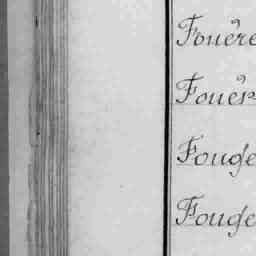 Fouère
Fouér
Fouge
Fouge